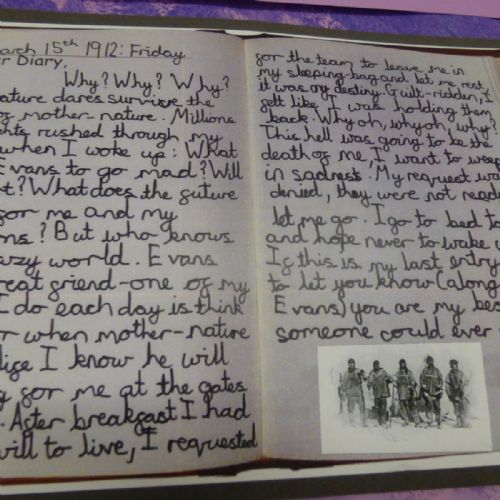 arch 15th 1912: Friday
r Diary,
Why? Why? Why?
ature dares survive the
of mother-nature. Millions
hts rushed through my
when I woke up: What
Evans to go mad? Will
t? What does the future
for me and my
ns? But who knows
azy world. Evans
reat friend-one of my
I do each day is think
r when mother-nature
I know he will
g for me at the gates
. After breakfast I had
will to live, I requested
for the team to leave me in
my sleeping-bag and let me rest
it was my destiny. Guilt-ridden, I
felt like I was holding them
back. Why oh, why oh, why?
This hell was going to be the
death of me, I want to wee
in sadness. My request wa
denied, they were not read
let me go. I go to bed to
and hope never to wake u
If this is my last entry
to let you know (along
Evans) you are my bes
someone could ever